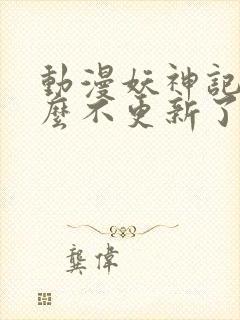 動漫妖神記
麼不更新了
龔偉